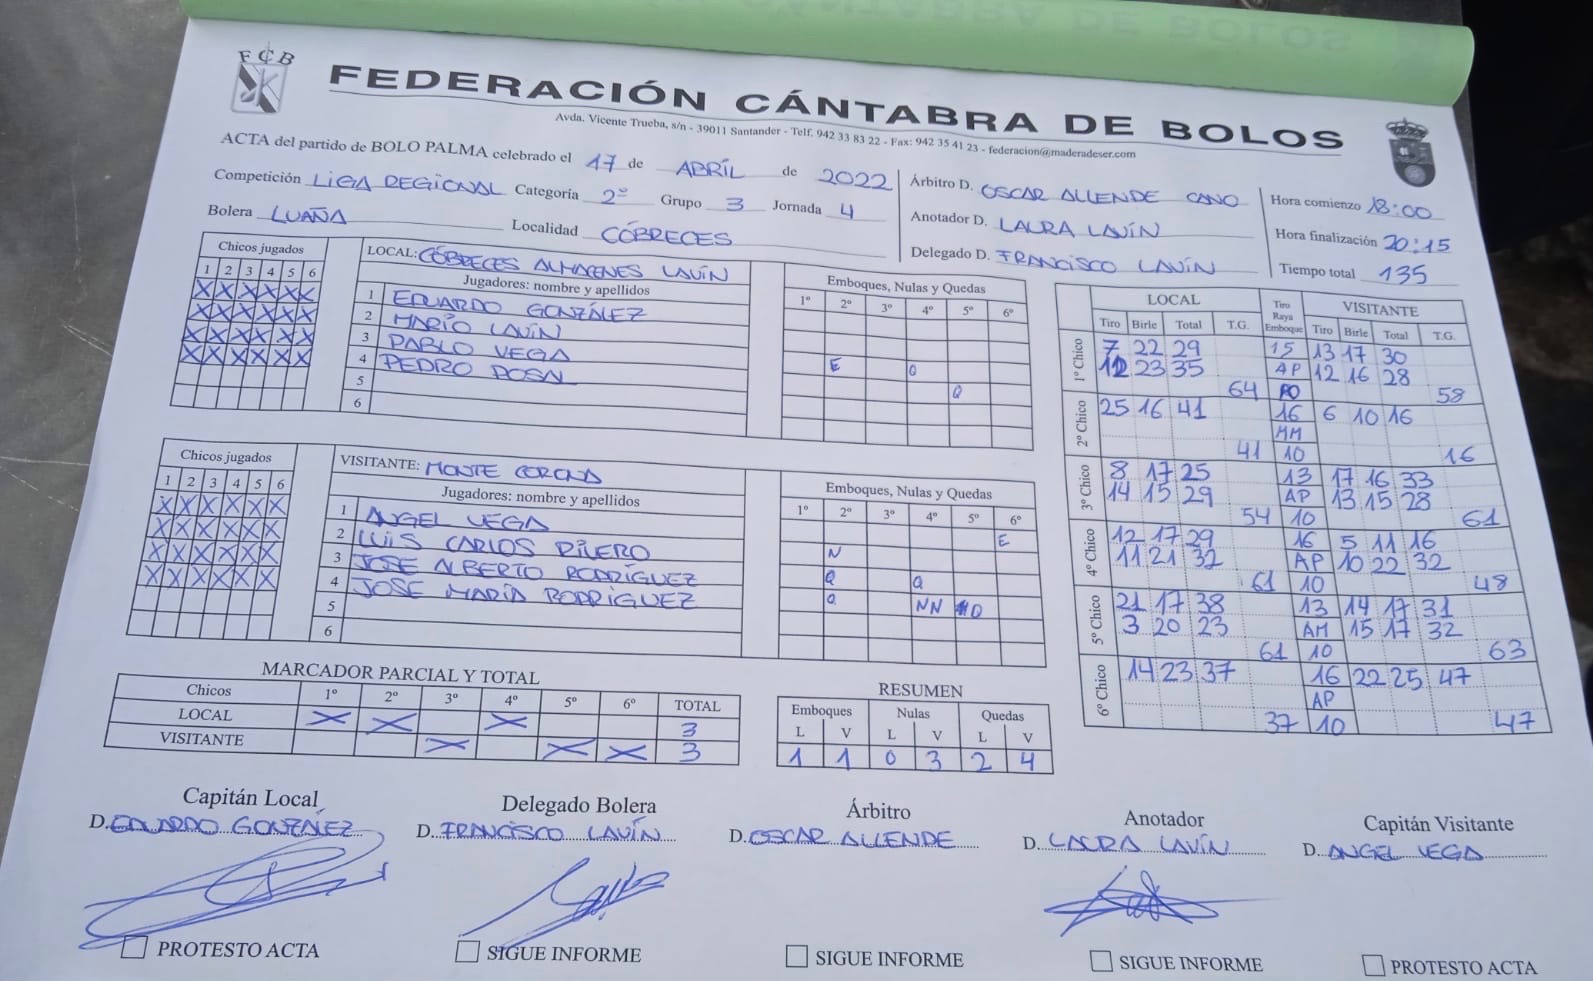 FCB
FEDERACIÓN CÁNTABRA DE BOLOS
Avda. Vicente Trueba, s/n - 39011 Santander - Telf. 942 33 83 22 - Fax: 942 35 41 23 - federacion@maderadeser.com
ACTA del partido de BOLO PALMA celebrado el 17 de ABRÍL de 2022
Competición LIGA REGIONAL Categoría 2ª Grupo 3 Jornada 4
Bolera LUAÑA Localidad CÓBRECES
Árbitro D. OSCAR ALLENDE CANO
Anotador D. LAURA LAVÍN
Delegado D. FRANCISCO LAVÍN
Hora comienzo 18:00
Hora finalización 20:15
Tiempo total 135
Chicos jugados
1 2 3 4 5 6
X X X X X X
X X X X X X
X X X X X X
X X X X X X
LOCAL: CÓBRECES ALMACENES LAVÍN
Jugadores: nombre y apellidos
1 EDUARDO GONZÁLEZ
2 MARIO LAVÍN
3 PABLO VEGA
4 PEDRO POSA
5
6
Emboques, Nulas y Quedas
1º 2º 3º 4º 5º 6º
E Q
Q
Chicos jugados
1 2 3 4 5 6
X X X X X X
X X X X X X
X X X X X X
X X X X X X
VISITANTE: MONTE CORONA
Jugadores: nombre y apellidos
1 ANGEL VEGA
2 LUIS CARLOS RIVERO
3 JOSE ALBERTO RODRÍGUEZ
4 JOSE MARÍA RODRÍGUEZ
5
6
Emboques, Nulas y Quedas
1º 2º 3º 4º 5º 6º
E
N
Q Q
Q NN Q
LOCAL Tiro Raya Emboque VISITANTE
Tiro Birle Total T.G. Tiro Birle Total T.G.
1º Chico
7 22 29 15 13 17 30
12 23 35 AP 12 16 28
64 58
2º Chico
25 16 41 16 6 10 16
MM
41 10 16
3º Chico
8 17 25 13 17 16 33
14 15 29 AP 13 15 28
54 10 61
4º Chico
12 17 29 16 5 11 16
11 21 32 AP 10 22 32
61 10 48
5º Chico
21 17 38 13 14 17 31
3 20 23 AM 15 17 32
61 10 63
6º Chico
14 23 37 16 22 25 47
AP
37 10 47
MARCADOR PARCIAL Y TOTAL
Chicos 1º 2º 3º 4º 5º 6º TOTAL
LOCAL X X X 3
VISITANTE X X X 3
RESUMEN
Emboques Nulas Quedas
L V L V L V
1 1 0 3 2 4
Capitán Local
D. EDUARDO GONZÁLEZ
Delegado Bolera
D. FRANCISCO LAVÍN
Árbitro
D. OSCAR ALLENDE
Anotador
D. LAURA LAVÍN
Capitán Visitante
D. ANGEL VEGA
PROTESTO ACTA
SIGUE INFORME
SIGUE INFORME
SIGUE INFORME
PROTESTO ACTA